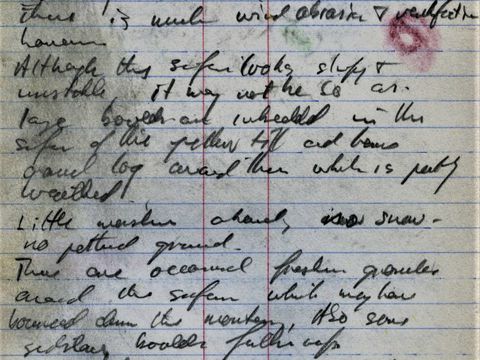 There is much wind abrasion & ventifaction
however
Although this surface looks sloping &
unstable it may not be so as
large boulders are embedded in the
surface of this yellow till and have
gravel log around them which is partly
weathered.
Little moisture already snow-
no patterned ground.
There are occasional fresher granules
around the surface which may have
bounced down the mountain, Also some
sandstone boulders